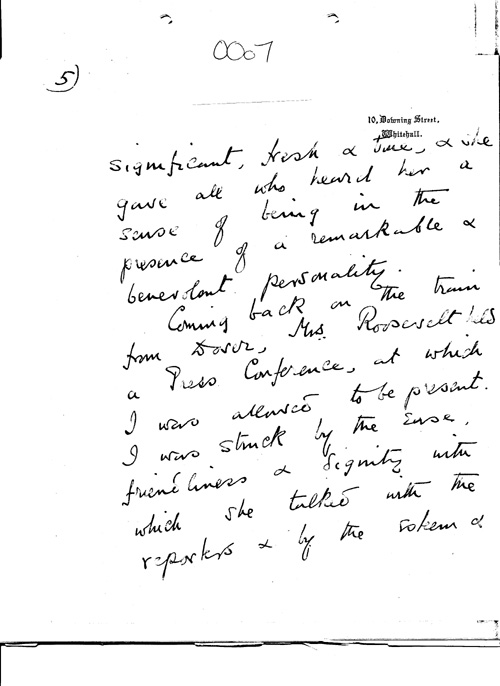 0007
5)
10, Downing Street,
Whitehall.
significant, fresh & true, & she
gave all who heard her a
sense of being in the
presence of a remarkable &
benevolent personality.
Coming back on the train
from Dover, Mrs. Roosevelt held
a Press Conference, at which
I was allowed to be present.
I was struck by the ease,
friendliness & dignity with
which she talked with the
reporters & by the esteem &